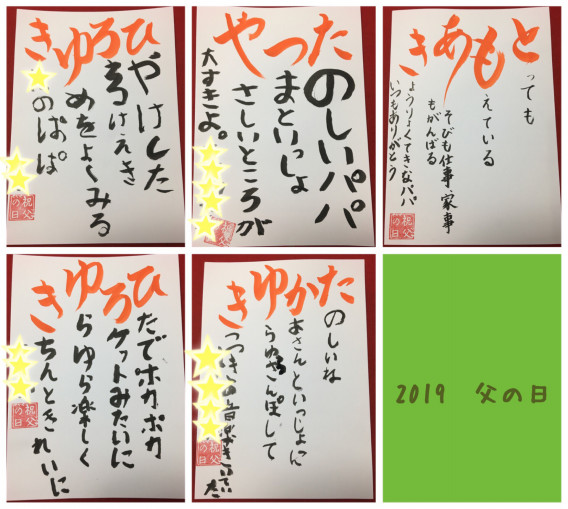 ひやけした
ゆめをよくみる
きのぱぱ
祝父の日
たのしいパパ
つまといっしょ
やさしいところが
大すきよ。
祝父の日
とっても
もえている
あそびも仕事・家事
もがんばる
きょうりょくてきなパパ
いつもありがとう
祝父の日
ひたでポカポカ
ろケットみたいに
ゆらゆら楽しく
きちんときれいに
祝父の日
たのしいね
かあさんといっしょに
ゆらゆらさんぽして
きつつきの音楽きいていた
祝父の日
2019 父の日